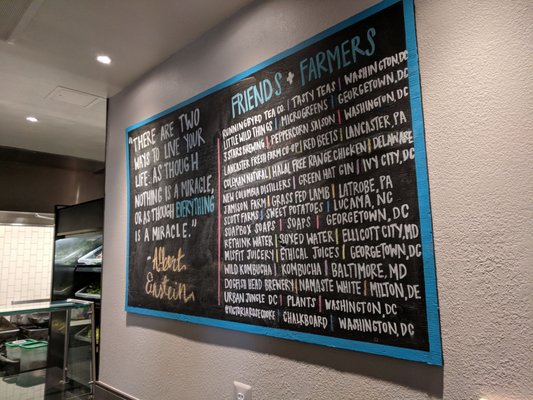 "THERE ARE TWO
WAYS TO LIVE YOUR
LIFE. AS THOUGH
NOTHING IS A MIRACLE,
OR AS THOUGH EVERYTHING
IS A MIRACLE."
-Albert
Einstein
FRIENDS + FARMERS
RUNNINGBYRD TEA CO. | TASTY TEAS | WASHINGTON, DC
LITTLE WILD THINGS | MICROGREENS | GEORGETOWN, DC
3 STARS BREWING | PEPPERCORN SAISON | WASHINGTON, DC
LANCASTER FRESH FARM CO-OP | RED BEETS | LANCASTER, PA
COLEMAN NATURAL | HALAL FREE RANGE CHICKEN | DELAWARE
NEW COLUMBIA DISTILLERS | GREEN HAT GIN | IVY CITY, DC
JAMISON FARM | GRASS FED LAMB | LATROBE, PA
SCOTT FARMS | SWEET POTATOES | LUCAMA, NC
SOAPBOX SOAPS | SOAPS | GEORGETOWN, DC
RETHINK WATER | BOXED WATER | ELLICOTT CITY, MD
MISFIT JUICERY | ETHICAL JUICES | GEORGETOWN, DC
WILD KOMBUCHA | KOMBUCHA | BALTIMORE, MD
DOGFISH HEAD BREWERY | NAMASTE WHITE | MILTON, DE
URBAN JUNGLE DC | PLANTS | WASHINGTON, DC
@VICTORIAROSECOOKE | CHALKBOARD | WASHINGTON, DC